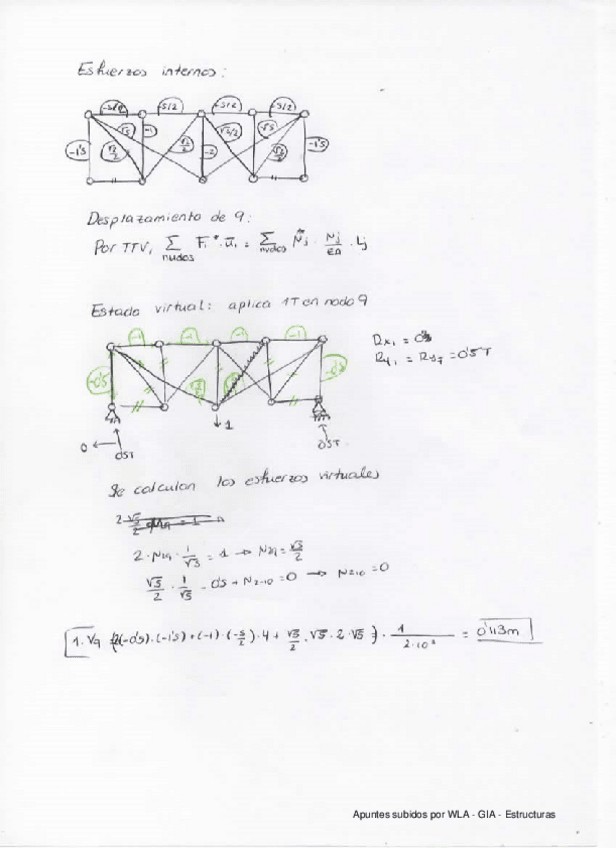 Esfuerzos internos:
-5/2 -5/2 -5/2
√5 -1 √5
-1'5 -2 -1'5
Desplazamiento de 9:
Por TTV, ∑ Fi* · ūi = ∑ Nj* · Nj/EA · Lj
nudos nudos
Estado virtual: aplica 1T en nodo 9
-1 -1 -1 -1
Rx1 = 0
Ry1 = Ry7 = 0'5T
-0'5
0 1
0'5T 0'5T
Se calculan los esfuerzos virtuales
2 · N29 · 1/√5 = 1 → N29 = √5/2
√5/2 · 1/√5 - 0'5 + N2-10 = 0 → N2-10 = 0
1 · V9 = (2(-0'5) · (-1'5) + (-1) · (-5/2) · 4 + √5/2 · √5 · 2 · √5) · 1/2·10² = 0'113m
Apuntes subidos por WLA - GIA - Estructuras